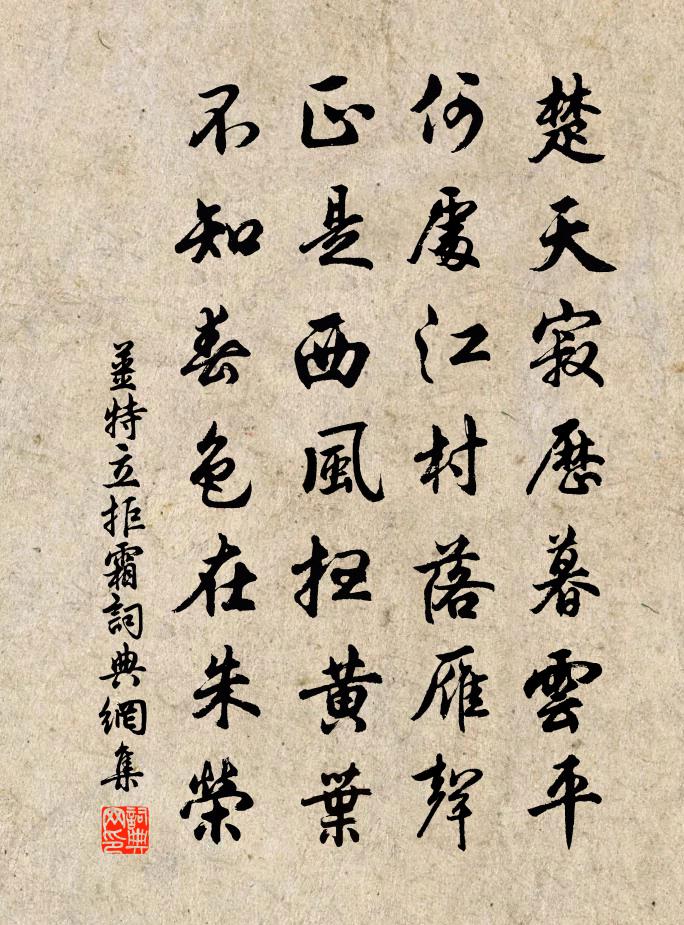 楚天寂歷暮雲平
何處江村落雁聲
正是西風狂黃葉
不知春色在朱榮
姜特立拒霜詞典網集
詞典網印